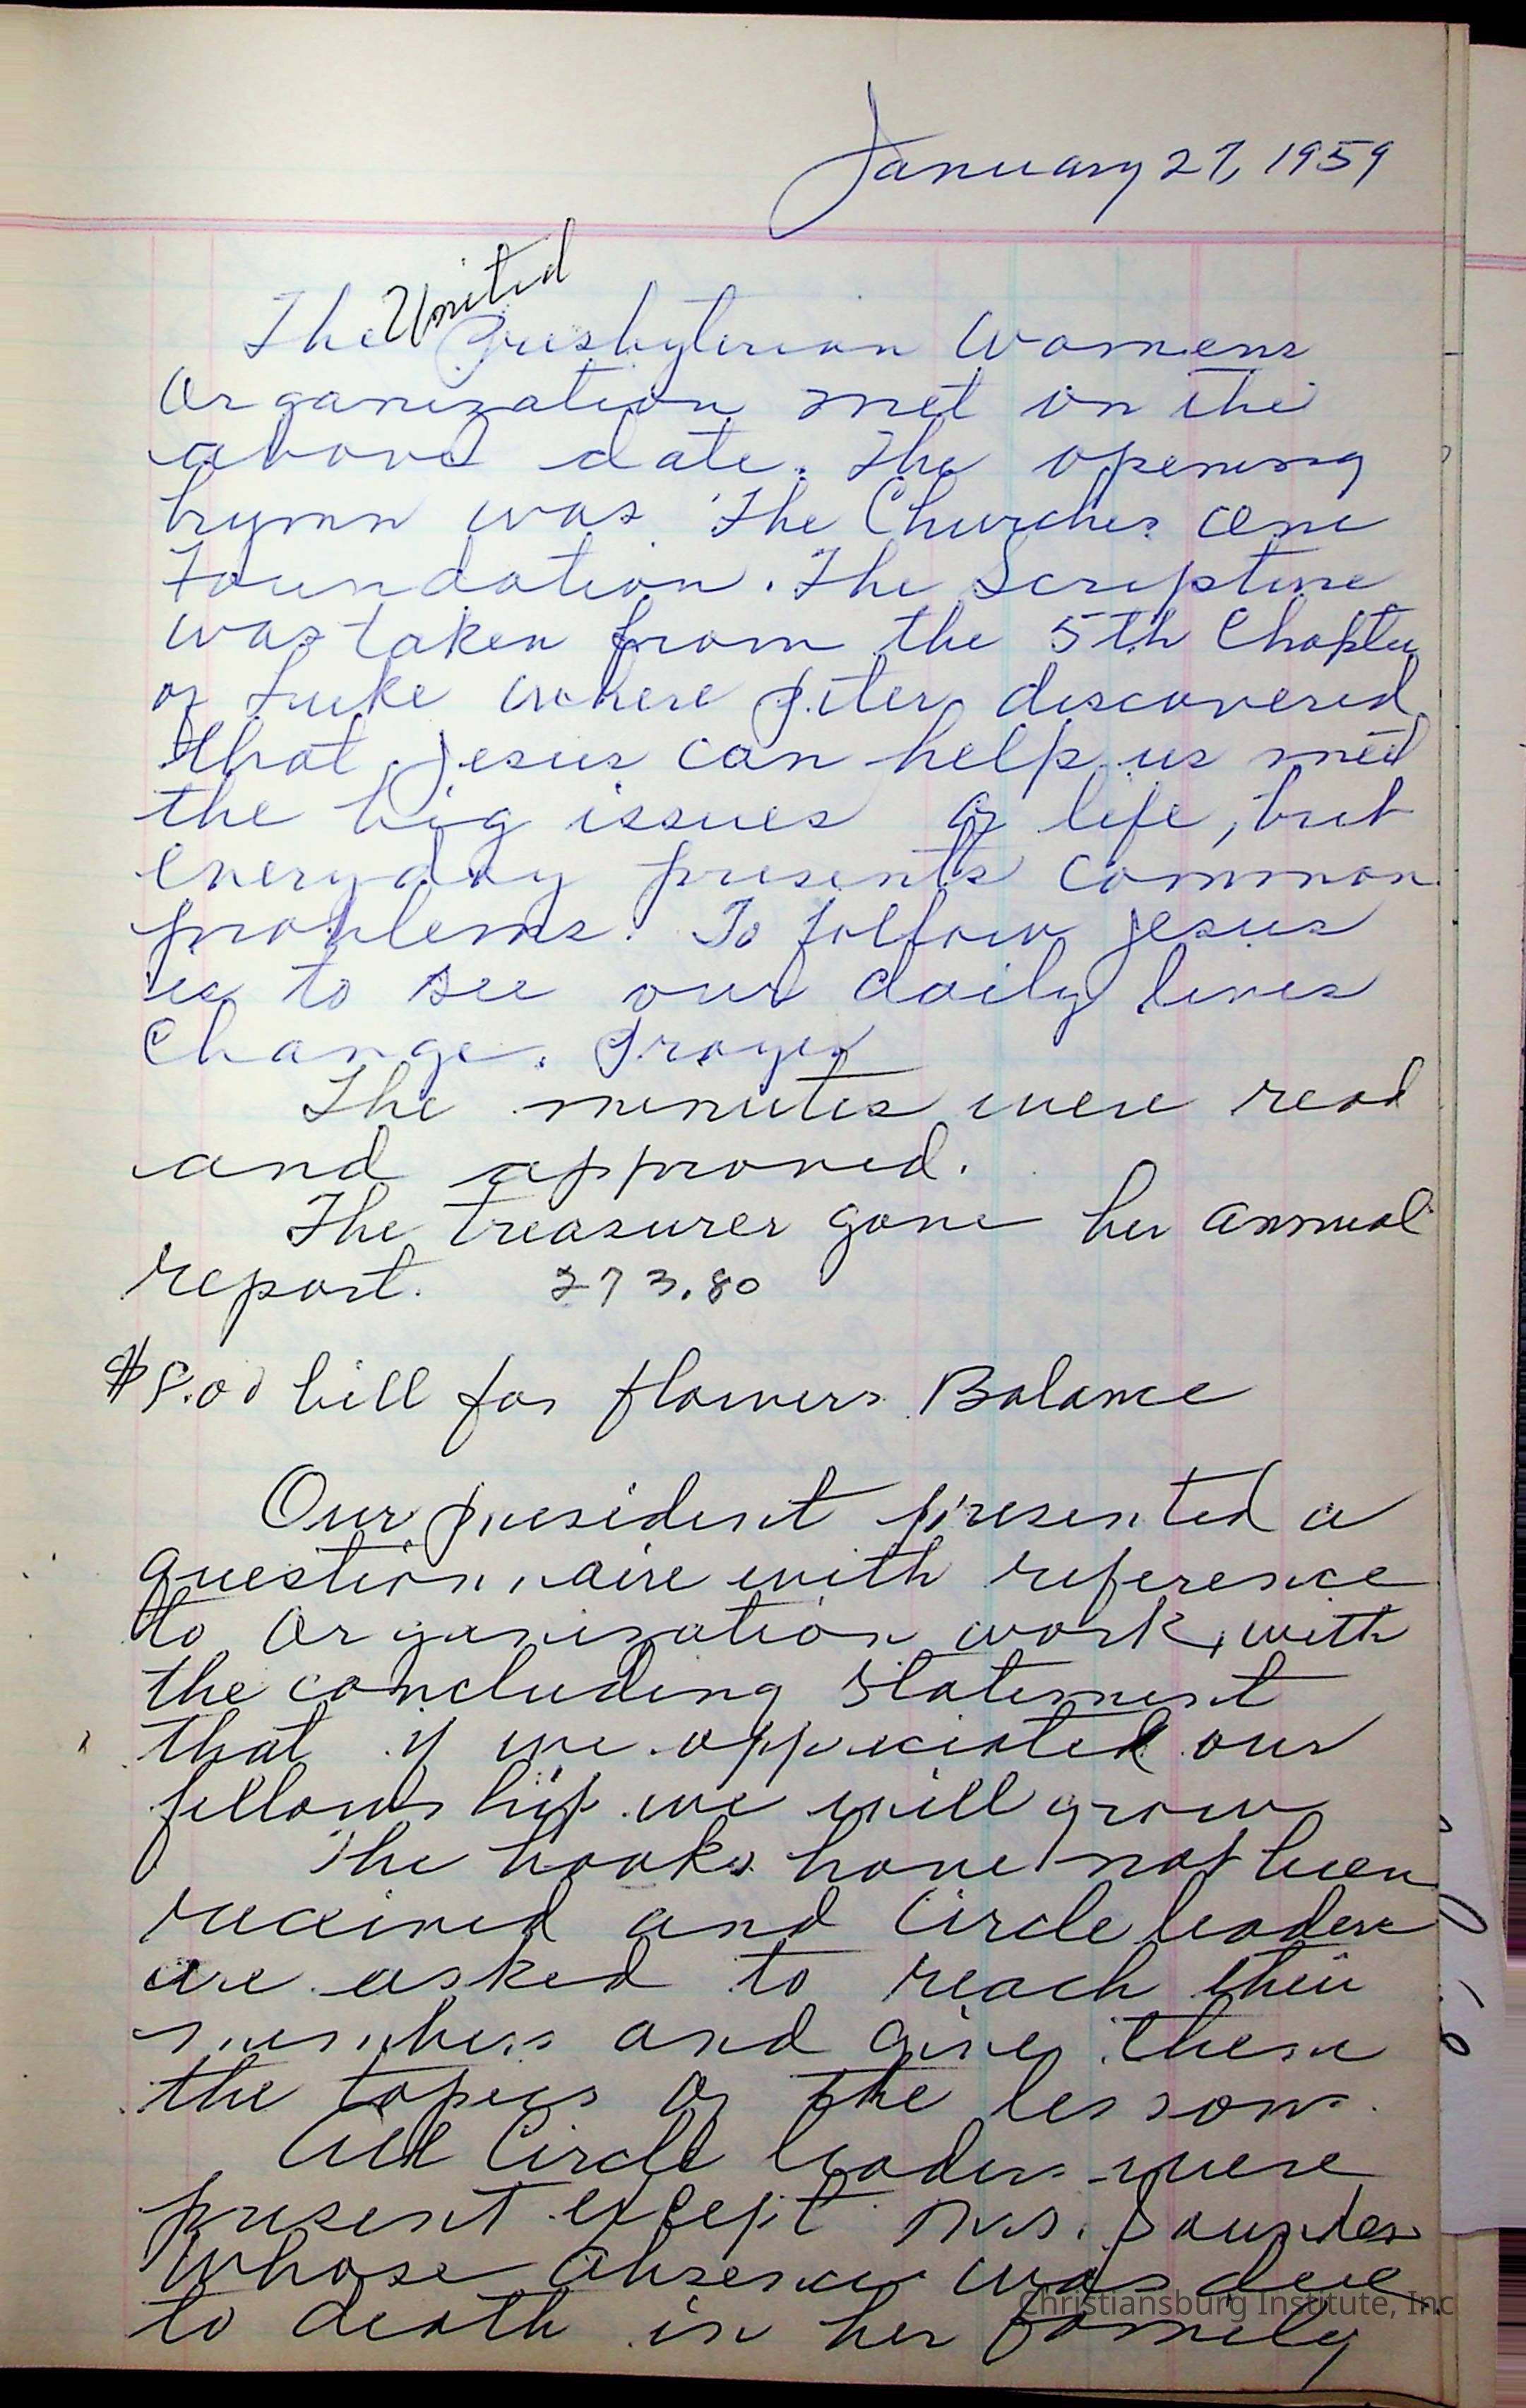 January 27, 1959
United
The Presbyterian Womens
Organization met on the
above date. The opening
hymn was The Churches One
Foundation. The Scripture
was taken from the 5th Chapter
of Luke where Peter discovered
that Jesus can help us meet
the big issues of life, but
everyday presents common
problems. To follow Jesus
is to see our daily lives
Change. Prayer
The minutes were read
and approved.
The treasurer gave her annual
report. 273.80
$8.00 bill for flowers Balance
Our president presented a
questionnaire with reference
to Organization work, with
the concluding statement
that if we appreciated our
fellowship we will grow
The books have not been
received and Circle leaders
are asked to reach their
members and give them
the topics of the lessons.
All Circle leaders were
present except Mrs. Saunders
whose absence was due
to death in her family
Christiansburg Institute, Inc